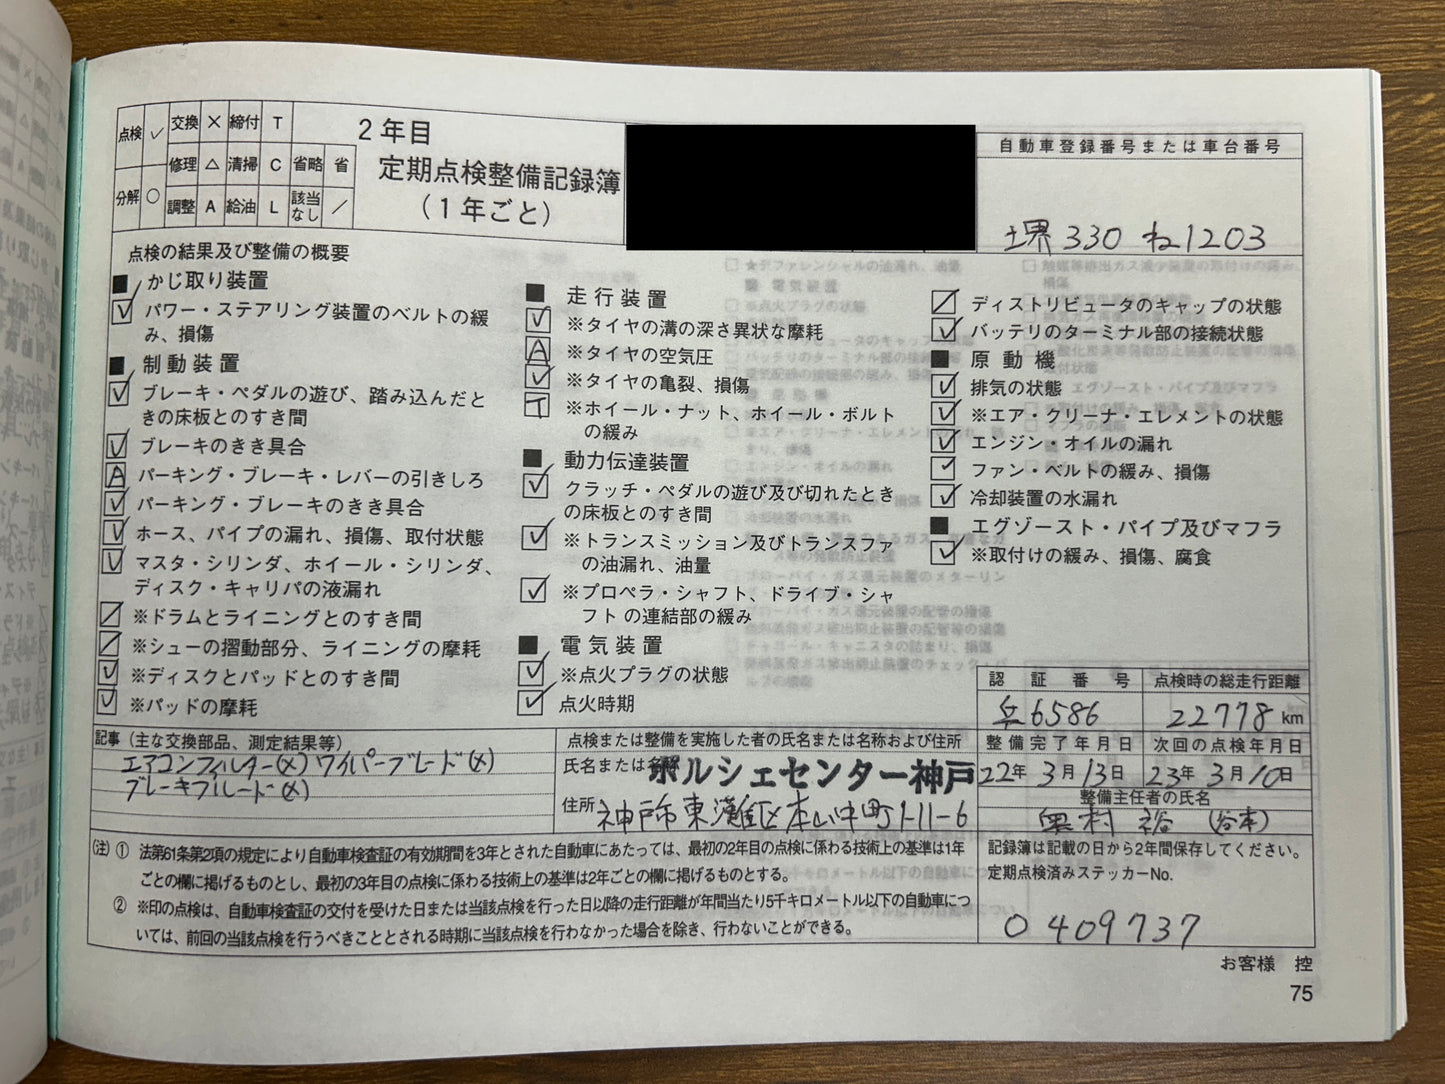 点検 ✓ 交換 × 締付 T
修理 △ 清掃 C 省略 省
分解 ○ 調整 A 給油 L 該当なし ／
2年目
定期点検整備記録簿
（1年ごと）
自動車登録番号または車台番号
堺330 ね1203
点検の結果及び整備の概要
■ かじ取り装置
✓ パワー・ステアリング装置のベルトの緩
み、損傷
■ 制動装置
✓ ブレーキ・ペダルの遊び、踏み込んだと
きの床板とのすき間
✓ ブレーキのきき具合
A パーキング・ブレーキ・レバーの引きしろ
✓ パーキング・ブレーキのきき具合
✓ ホース、パイプの漏れ、損傷、取付状態
✓ マスタ・シリンダ、ホイール・シリンダ、
ディスク・キャリパの液漏れ
／ ※ドラムとライニングとのすき間
／ ※シューの摺動部分、ライニングの摩耗
✓ ※ディスクとパッドとのすき間
✓ ※パッドの摩耗
■ 走行装置
✓ ※タイヤの溝の深さ異状な摩耗
A ※タイヤの空気圧
✓ ※タイヤの亀裂、損傷
T ※ホイール・ナット、ホイール・ボルト
の緩み
■ 動力伝達装置
✓ クラッチ・ペダルの遊び及び切れたとき
の床板とのすき間
✓ ※トランスミッション及びトランスファ
の油漏れ、油量
✓ ※プロペラ・シャフト、ドライブ・シャ
フトの連結部の緩み
■ 電気装置
✓ ※点火プラグの状態
✓ 点火時期
／ ディストリビュータのキャップの状態
✓ バッテリのターミナル部の接続状態
■ 原動機
✓ 排気の状態
✓ ※エア・クリーナ・エレメントの状態
✓ エンジン・オイルの漏れ
✓ ファン・ベルトの緩み、損傷
✓ 冷却装置の水漏れ
■ エグゾースト・パイプ及びマフラ
✓ ※取付けの緩み、損傷、腐食
認証番号 点検時の総走行距離
兵6586 22778 km
整備完了年月日 次回の点検年月日
22年3月13日 23年3月10日
整備主任者の氏名
奥村 裕 (谷本)
記事（主な交換部品、測定結果等）
エアコンフィルター(×) ワイパーブレード(×)
ブレーキフルード(×)
点検または整備を実施した者の氏名または名称および住所
氏名または名称 ポルシェセンター神戸
住所 神戸市東灘区本山中町1-11-6
（注）① 法第61条第2項の規定により自動車検査証の有効期間を3年とされた自動車にあたっては、最初の2年目の点検に係わる技術上の基準は1年
ごとの欄に掲げるものとし、最初の3年目の点検に係わる技術上の基準は2年ごとの欄に掲げるものとする。
② ※印の点検は、自動車検査証の交付を受けた日または当該点検を行った日以降の走行距離が年間当たり5千キロメートル以下の自動車につ
いては、前回の当該点検を行うべきこととされる時期に当該点検を行わなかった場合を除き、行わないことができる。
記録簿は記載の日から2年間保存してください。
定期点検済みステッカーNo.
0409737
お客様 控
75